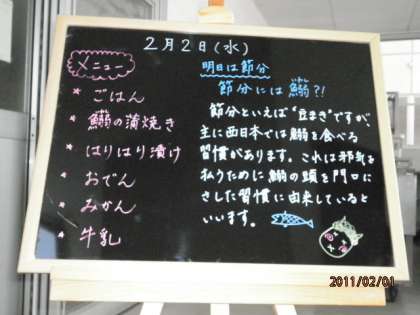 2月2日(水)
メニュー
* ごはん
* 鰯の蒲焼き
* はりはり漬け
* おでん
* みかん
* 牛乳
明日は節分
節分には鰯?!
いわし
節分といえば“豆まき”ですが、
主に西日本では鰯を食べる
習慣があります。これは邪気を
払うために鰯の頭を門口に
さした習慣に由来していると
いいます。
2011/02/01